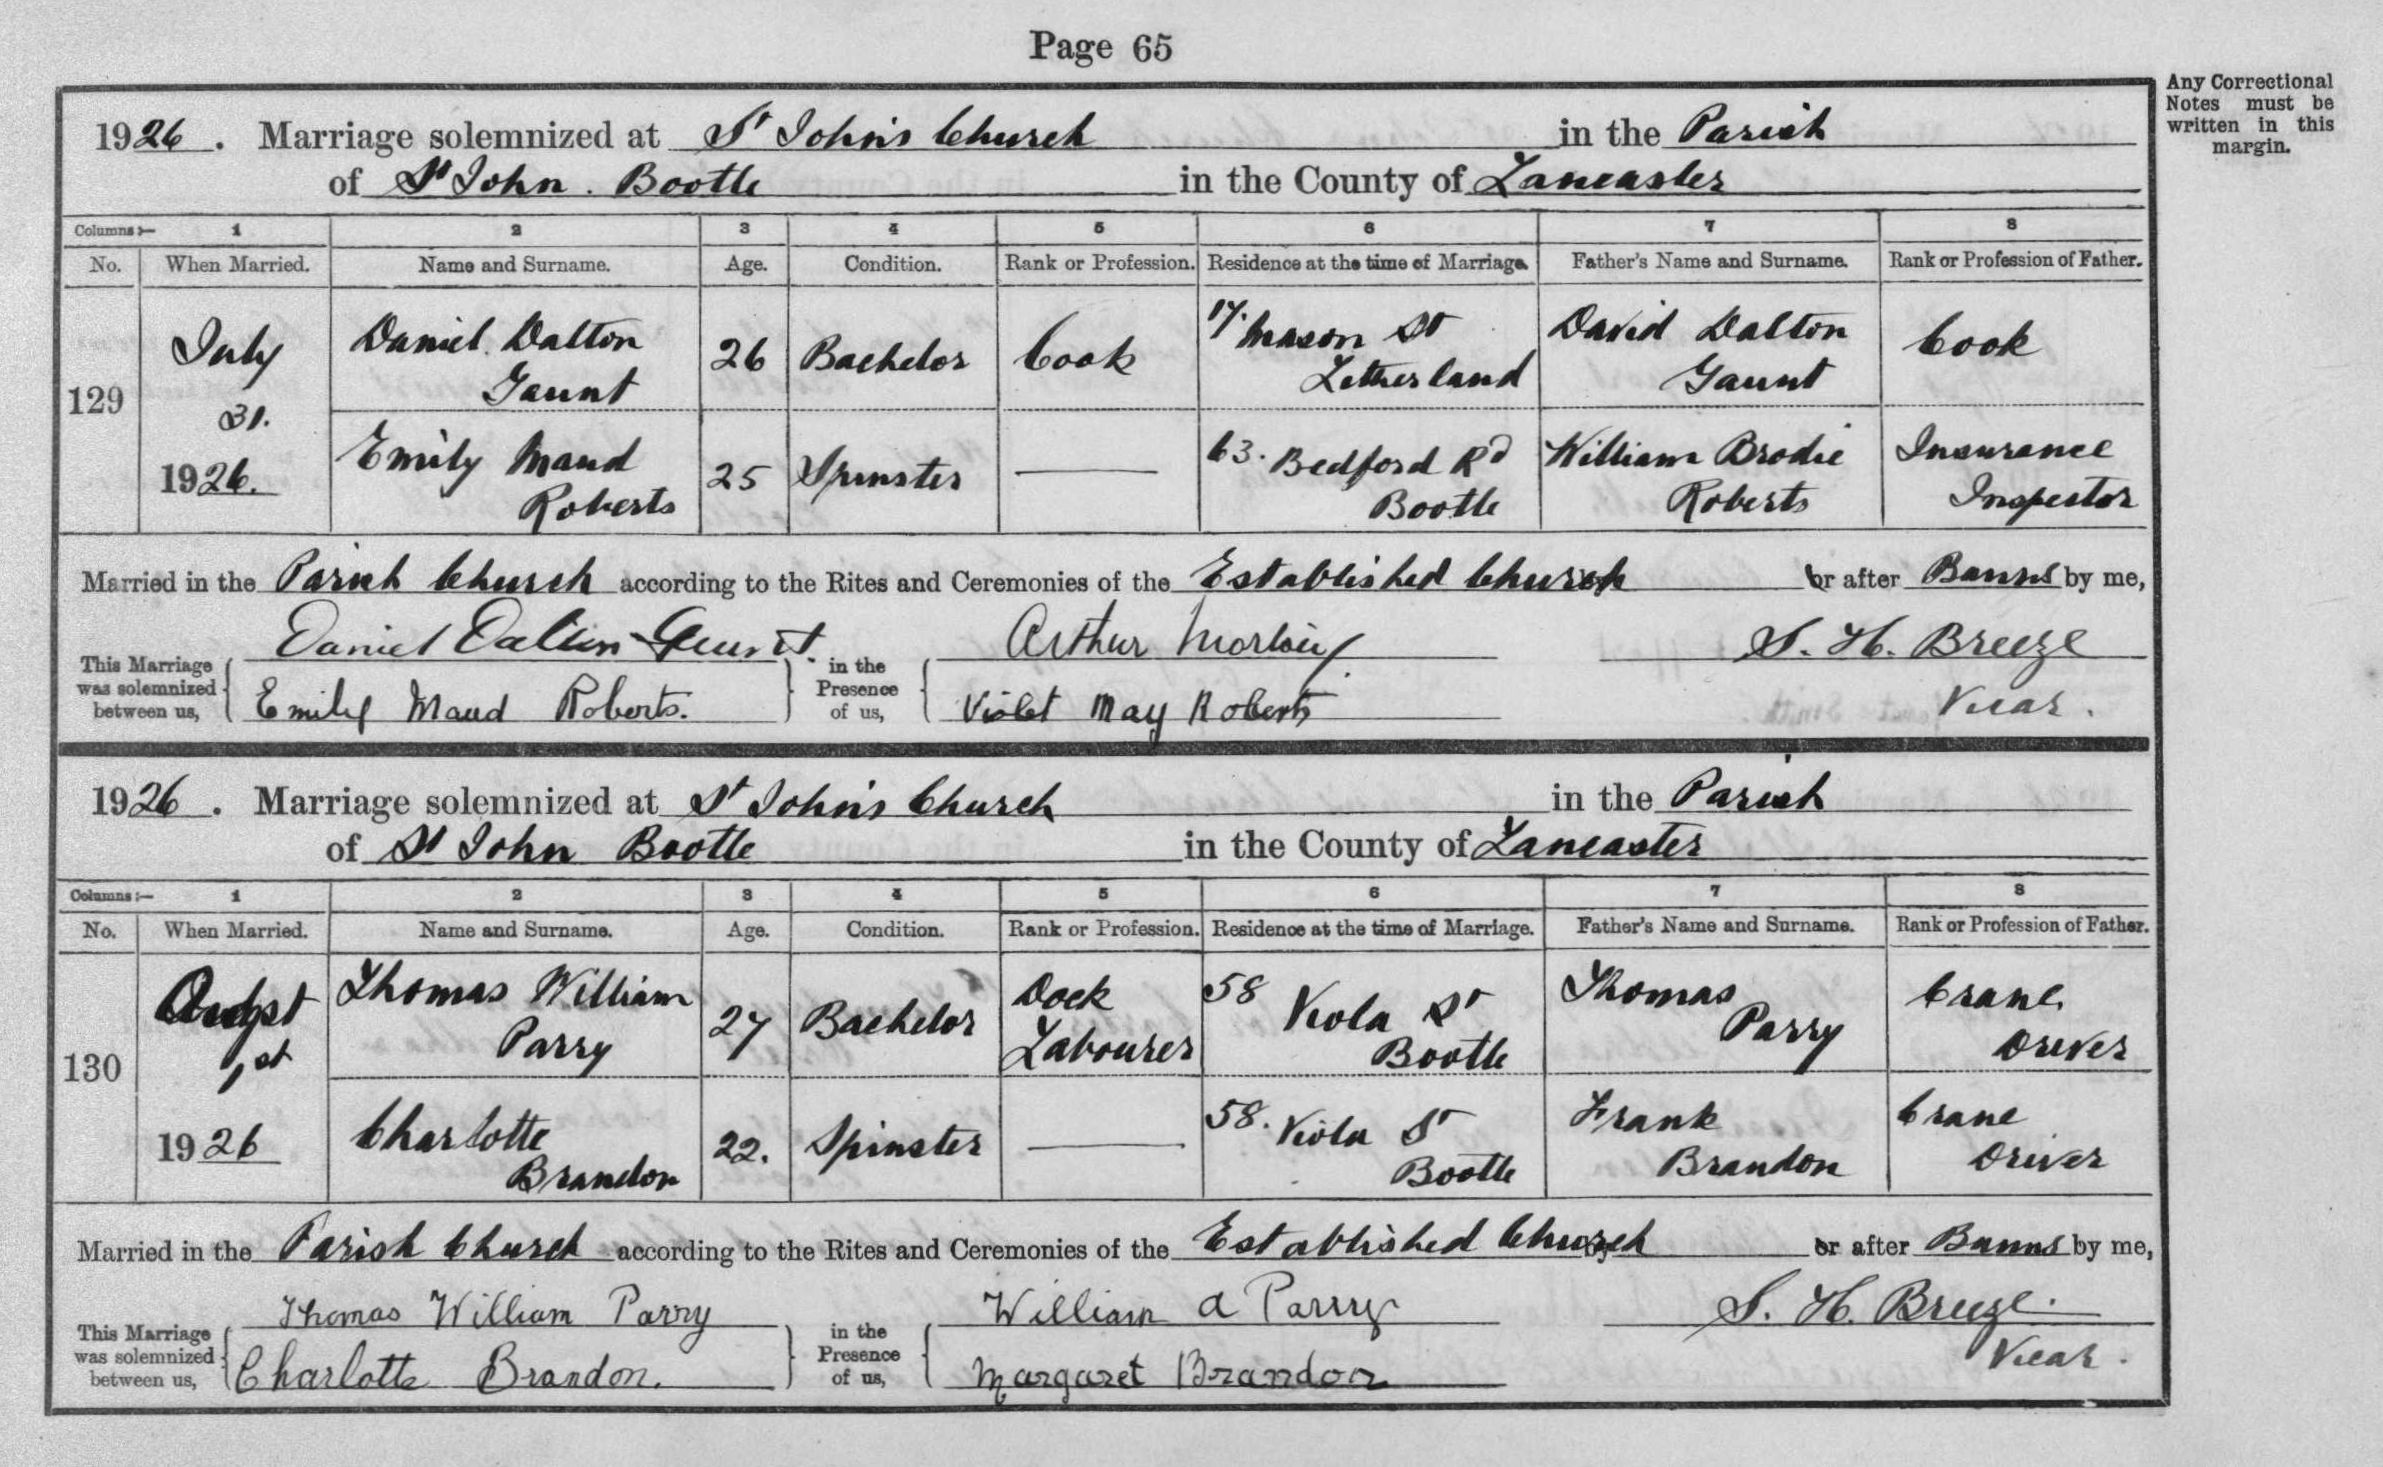 Page 65
Any Correctional
Notes must be
written in this
margin.
1926. Marriage solemnized at St John's Church in the Parish
of St John. Bootle in the County of Lancaster
Columns:— 1 2 3 4 5 6 7 8
No. When Married. Name and Surname. Age. Condition. Rank or Profession. Residence at the time of Marriage. Father's Name and Surname. Rank or Profession of Father.
129 July 31. 1926.
Daniel Dalton Gaunt 26 Bachelor Cook 17. Mason St Litherland David Dalton Gaunt Cook
Emily Maud Roberts 25 Spinster — 63. Bedford Rd Bootle William Brodie Roberts Insurance Inspector
Married in the Parish Church according to the Rites and Ceremonies of the Established Church or after Banns by me,
This Marriage was solemnized between us, Daniel Dalton Gaunt in the Presence of us, Arthur S. H. Breeze
Emily Maud Roberts. Violet May Roberts Vicar.
1926. Marriage solemnized at St John's Church in the Parish
of St John Bootle in the County of Lancaster
Columns:— 1 2 3 4 5 6 7 8
No. When Married. Name and Surname. Age. Condition. Rank or Profession. Residence at the time of Marriage. Father's Name and Surname. Rank or Profession of Father.
130 Augst 1st 1926
Thomas William Parry 27 Bachelor Dock Labourer 58 Viola St Bootle Thomas Parry Crane Driver
Charlotte Brandon 22. Spinster — 58. Viola St Bootle Frank Brandon Crane Driver
Married in the Parish Church according to the Rites and Ceremonies of the Established Church or after Banns by me,
This Marriage was solemnized between us, Thomas William Parry in the Presence of us, William A Parry S. H. Breeze.
Charlotte Brandon. Margaret Brandon Vicar.